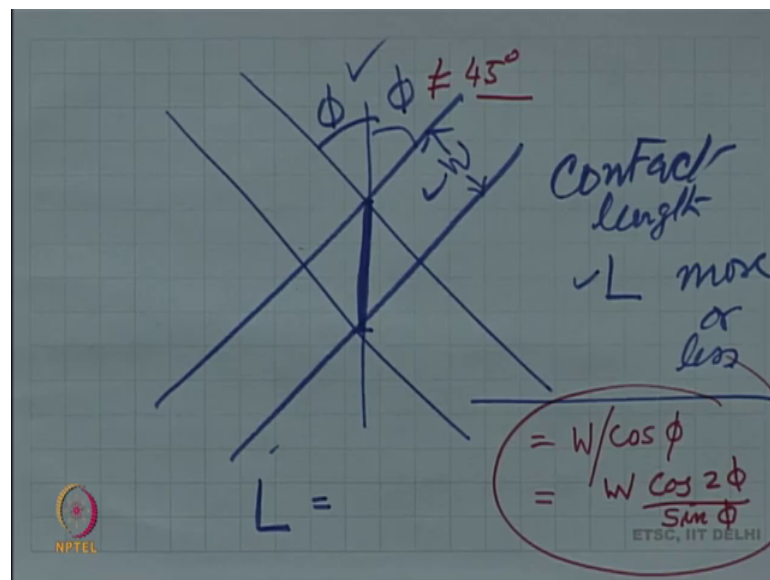 ϕ ✓ ϕ ≠ 45°
✓ W
Contact
length
✓ L more
or
less
= W/cos ϕ
= W cos 2ϕ / sin ϕ
L =
NPTEL
ETSC, IIT DELHI